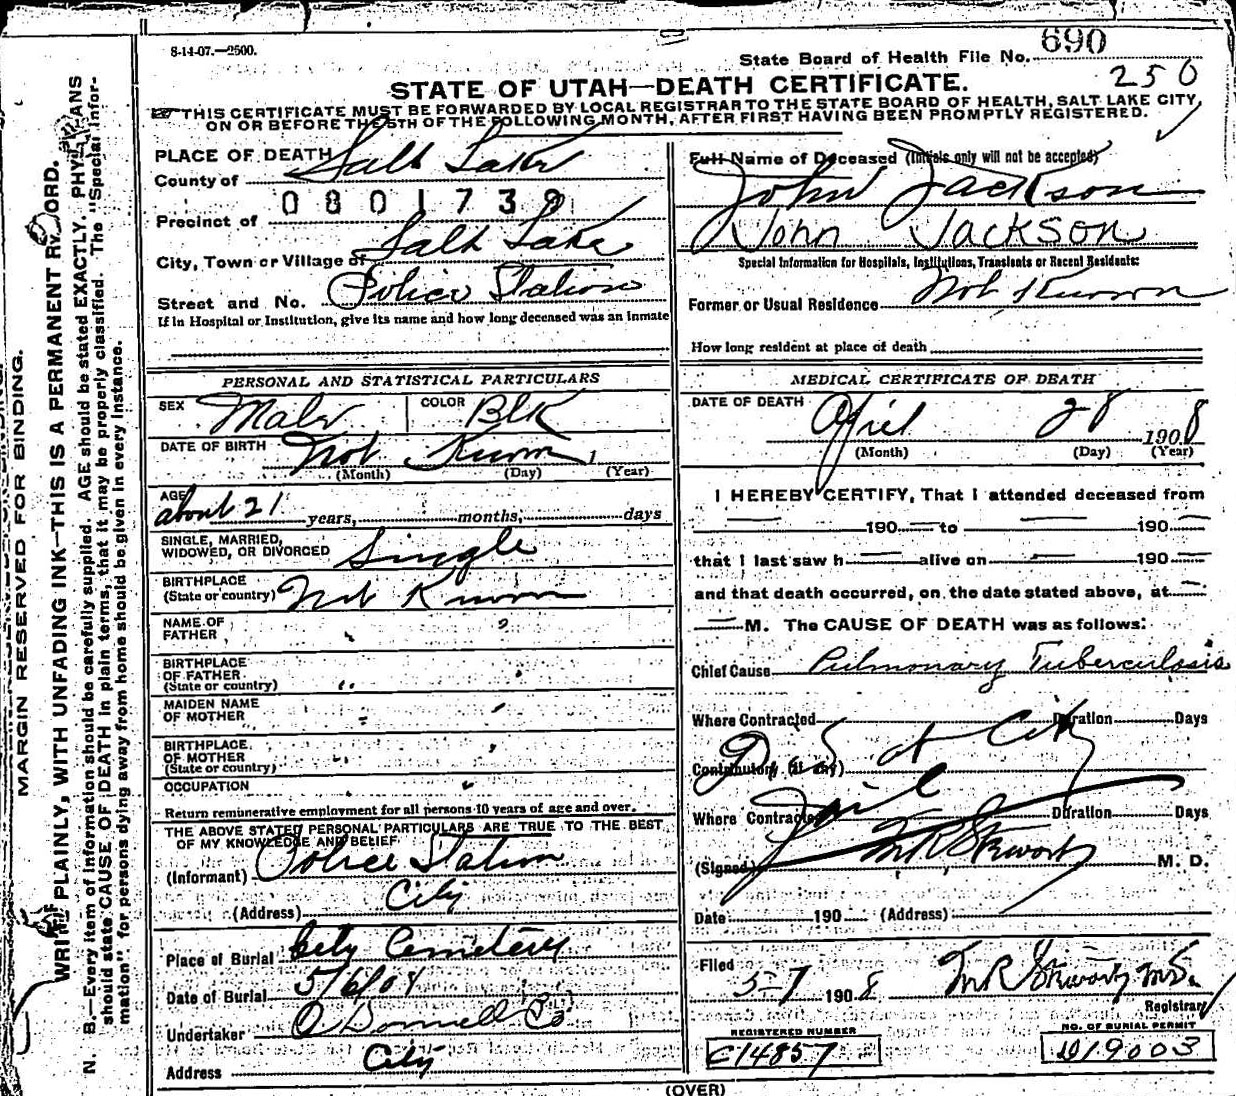 8-14-07.—2500.
State Board of Health File No. 690
250
STATE OF UTAH—DEATH CERTIFICATE.
THIS CERTIFICATE MUST BE FORWARDED BY LOCAL REGISTRAR TO THE STATE BOARD OF HEALTH, SALT LAKE CITY,
ON OR BEFORE THE 5TH OF THE FOLLOWING MONTH, AFTER FIRST HAVING BEEN PROMPTLY REGISTERED.
PLACE OF DEATH
County of Salt Lake
0801739
Precinct of
City, Town or Village of Salt Lake
Street and No. Police Station
If in Hospital or Institution, give its name and how long deceased was an inmate
Full Name of Deceased (Initials only will not be accepted)
John Jackson
John Jackson
Special Information for Hospitals, Institutions, Transients or Recent Residents:
Former or Usual Residence Not Known
How long resident at place of death
PERSONAL AND STATISTICAL PARTICULARS
SEX Male COLOR Blk
DATE OF BIRTH Not Known, 1
(Month) (Day) (Year)
AGE about 21 years, months, days
SINGLE, MARRIED,
WIDOWED, OR DIVORCED Single
BIRTHPLACE
(State or country) Not Known
NAME OF
FATHER " "
BIRTHPLACE
OF FATHER
(State or country) " "
MAIDEN NAME
OF MOTHER " "
BIRTHPLACE
OF MOTHER
(State or country) " "
OCCUPATION " "
Return remunerative employment for all persons 10 years of age and over.
THE ABOVE STATED PERSONAL PARTICULARS ARE TRUE TO THE BEST
OF MY KNOWLEDGE AND BELIEF
(Informant) Police Station
(Address) City
Place of Burial City Cemetery
Date of Burial 5/6/08
Undertaker O'Donnell & Co
Address City
MEDICAL CERTIFICATE OF DEATH
DATE OF DEATH
April 28 1908
(Month) (Day) (Year)
I HEREBY CERTIFY, That I attended deceased from
— 190 — to — 190 —
that I last saw h — alive on — 190 —
and that death occurred, on the date stated above, at —
— M. The CAUSE OF DEATH was as follows:
Chief Cause Pulmonary Tuberculosis
Where Contracted Duration Days
at City
Contributory (if any)
Jail
Where Contracted Duration Days
(Signed) M. D.
Date 190 (Address)
Filed 5-7 1908
Registrar
REGISTERED NUMBER
C14857
NO. OF BURIAL PERMIT
D19003
(OVER)
MARGIN RESERVED FOR BINDING.
WRITE PLAINLY, WITH UNFADING INK—THIS IS A PERMANENT RECORD.
N. B.—Every item of information should be carefully supplied. AGE should be stated EXACTLY. PHYSICIANS
should state CAUSE OF DEATH in plain terms, that it may be properly classified. The "Special Infor-
mation" for persons dying away from home should be given in every instance.